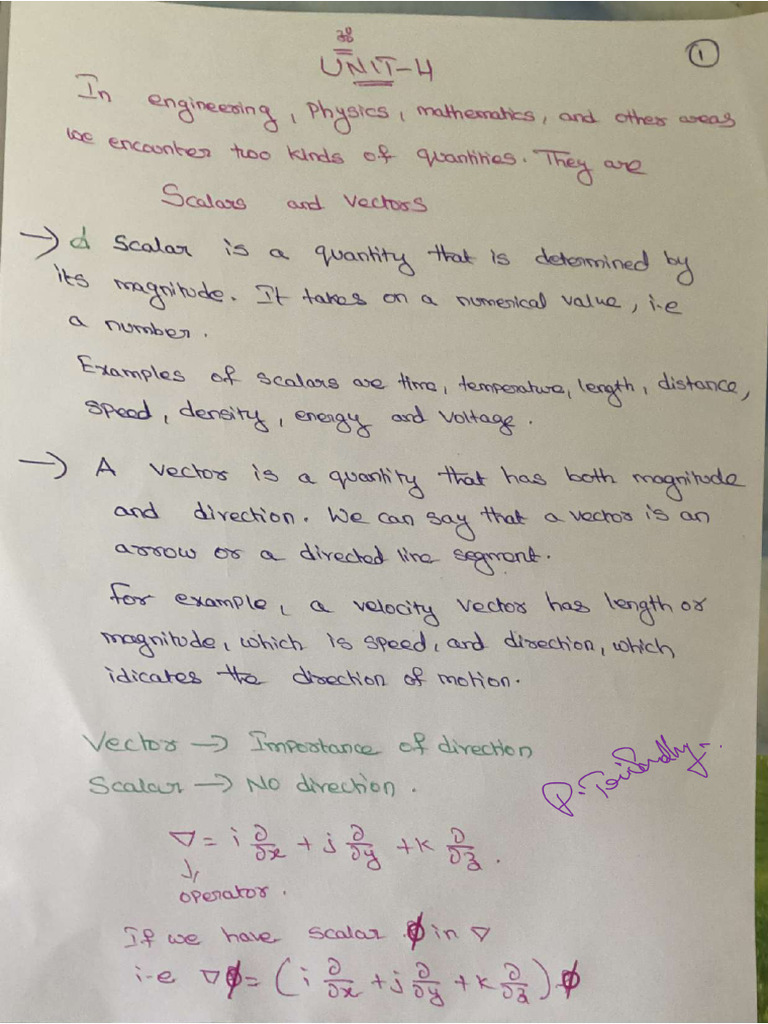 UNIT-4
1
In engineering, Physics, mathematics, and other areas
we encounter two kinds of quantities. They are
Scalars and Vectors
→ A Scalar is a quantity that is determined by
its magnitude. It takes on a numerical value, i.e
a number.
Examples of scalars are time, temperature, length, distance,
speed, density, energy and voltage.
→ A vector is a quantity that has both magnitude
and direction. We can say that a vector is an
arrow or a directed line segment.
For example, a velocity vector has length or
magnitude, which is speed, and direction, which
idicates the direction of motion.
Vector → Importance of direction
Scalar → No direction.
∇ = i ∂/∂x + j ∂/∂y + k ∂/∂z.
↓
operator.
If we have scalar φ in ∇
i.e ∇φ = (i ∂/∂x + j ∂/∂y + k ∂/∂z) φ